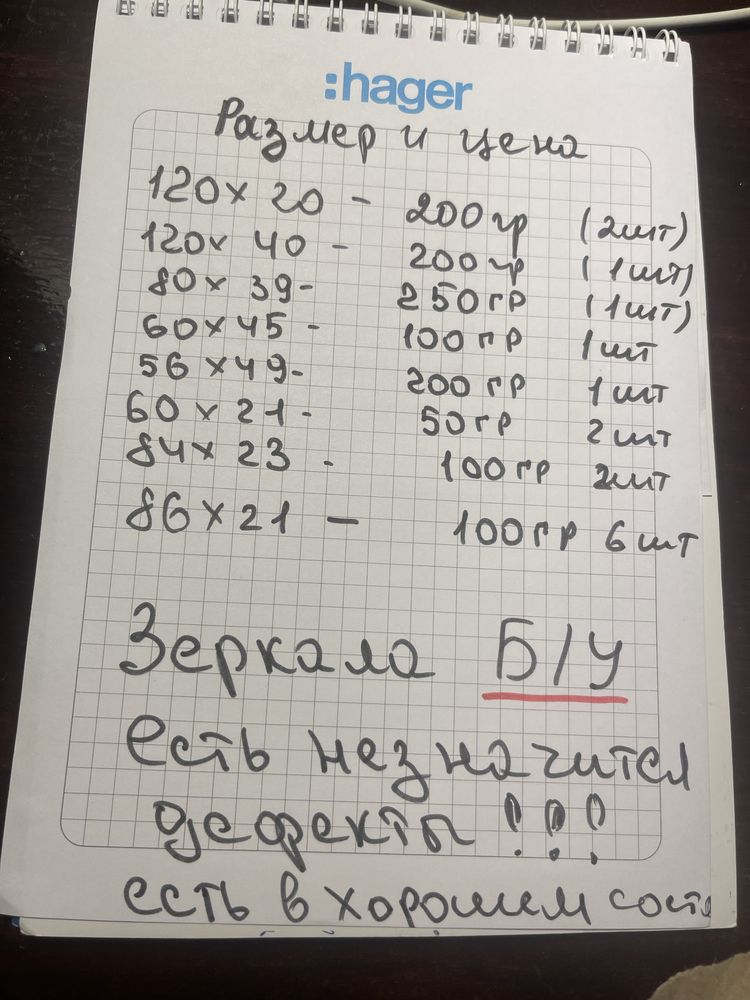 :hager
Размер и цена
120 x 20 - 200гр (2шт)
120x 40 - 200гр (1шт)
80x 39- 250гр (1шт)
60x45 - 100гр 1шт
56x49- 200гр 1шт
60x21- 50гр 2шт
84x23 - 100гр 2шт
86x21 - 100гр 6шт
Зеркала Б/У
есть незначител
дефекты!!!
есть в хорошем состя